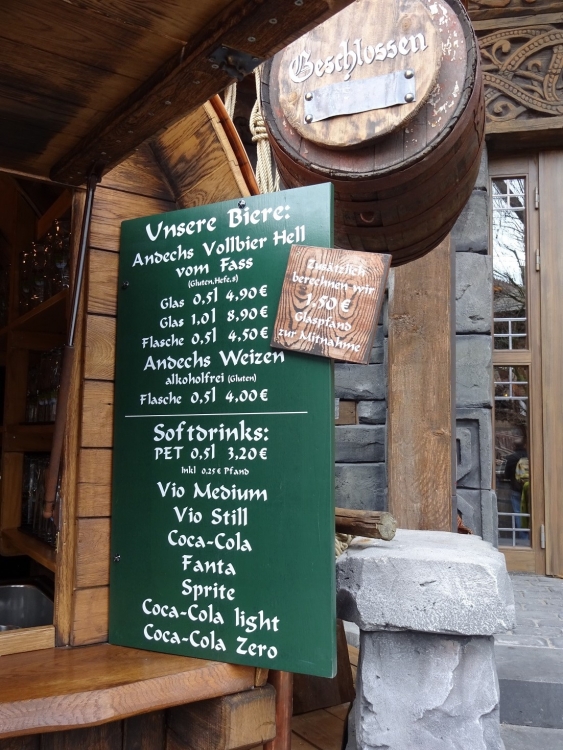 Geschlossen
Unsere Biere:
Andechs Vollbier Hell
vom Fass
(Gluten,Hefe,8)
Glas 0,5l 4,90€
Glas 1,0l 8,90€
Flasche 0,5l 4,50€
Andechs Weizen
alkoholfrei (Gluten)
Flasche 0,5l 4,00€
Zusätzlich
berechnen wir
3,50 €
Glaspfand
zur Mitnahme
Softdrinks:
PET 0,5l 3,20€
Inkl 0.25€ Pfand
Vio Medium
Vio Still
Coca-Cola
Fanta
Sprite
Coca-Cola light
Coca-Cola Zero